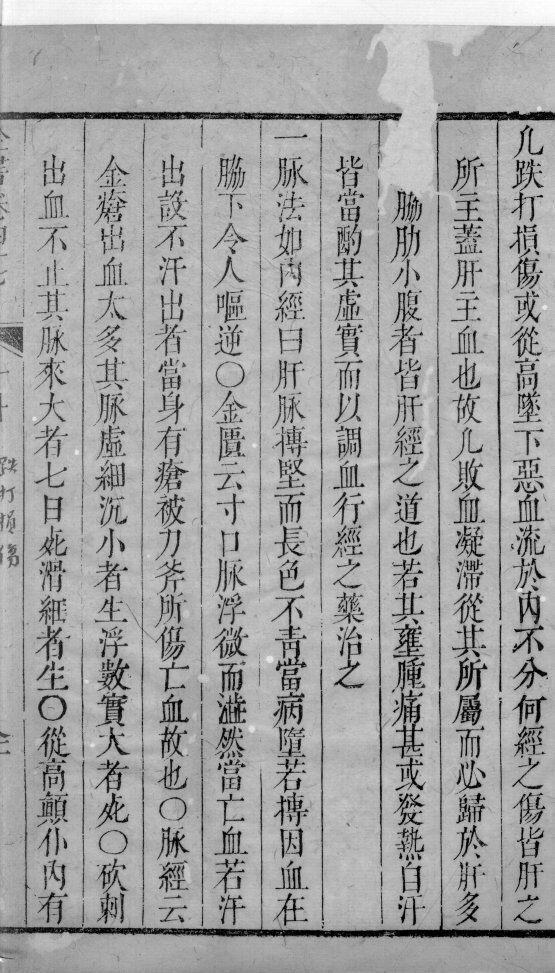 凢跌打損傷或從高墜下惡血流於內不分何經之傷皆肝之
所主蓋肝主血也故凢敗血凝滯從其所屬而必歸於肝多
脇肋小腹者皆肝經之道也若其壅腫痛甚或發熱自汗
皆當酌其虛實而以調血行經之藥治之
一脉法如內經曰肝脉摶堅而長色不青當病墮若摶因血在
脇下令人嘔逆〇金匱云寸口脉浮微而濇然當亡血若汗
出設不汗出者當身有瘡被刀斧所傷亡血故也〇脉經云
金瘡出血太多其脉虛細沉小者生浮數實大者死〇砍刺
出血不止其脉來大者七日死滑細者生〇從高顛仆內有
跌打損傷